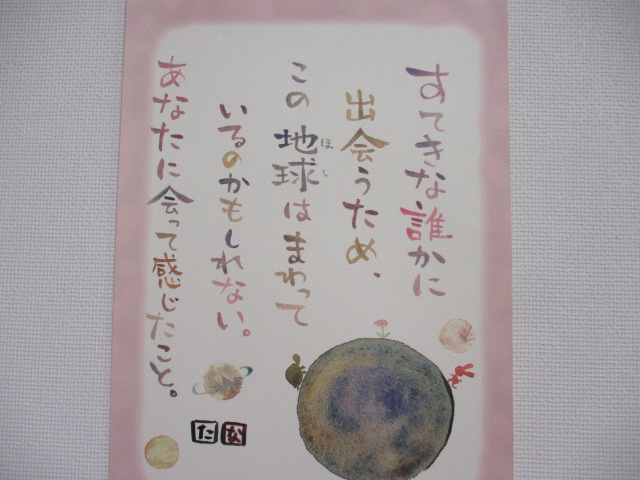 すてきな誰かに
出会うため、
この地球はまわって
ほし
いるのかもしれない。
あなたに会って感じたこと。
たな